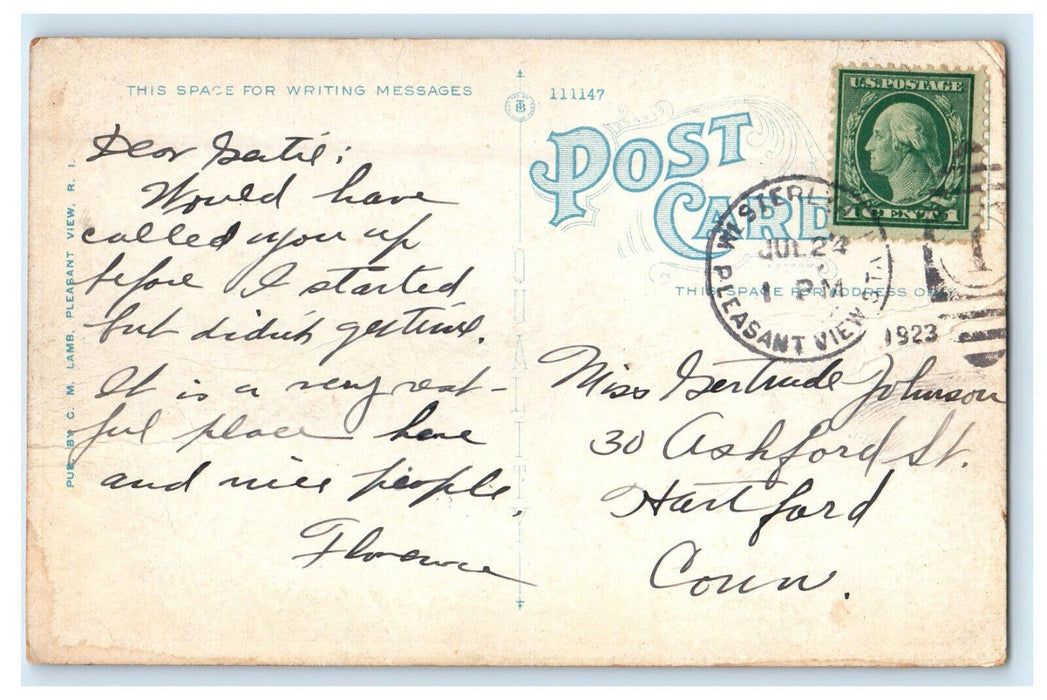 THIS SPACE FOR WRITING MESSAGES
Dear Gertie:
Would have
called you up
before I started
but didn't get time.
It is a very rest-
ful place here
and nice people.
Florence
PUB. BY C. M. LAMB, PLEASANT VIEW, R. I.
QUALITY
TB
111147
POST
CARD
THIS SPACE FOR ADDRESS ONLY
U.S. POSTAGE
1 CENT 1
WESTERLY
JUL 24
1 PM
PLEASANT VIEW STA.
1923
Miss Gertrude Johnson
30 Ashford St.
Hartford
Conn.